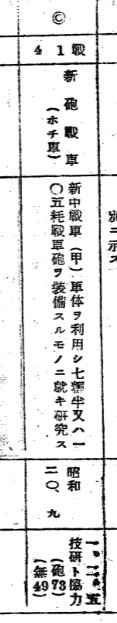 別ニ示ス
©
戰 1 4
新砲戰車
(ホチ車)
新中戰車(甲)車体ヲ利用シ七糎半又ハ一
〇五粍戰車砲ヲ装備スルモノニ就キ研究ス
昭和
二〇、九
技研ト協力
(砲73)
(無49)